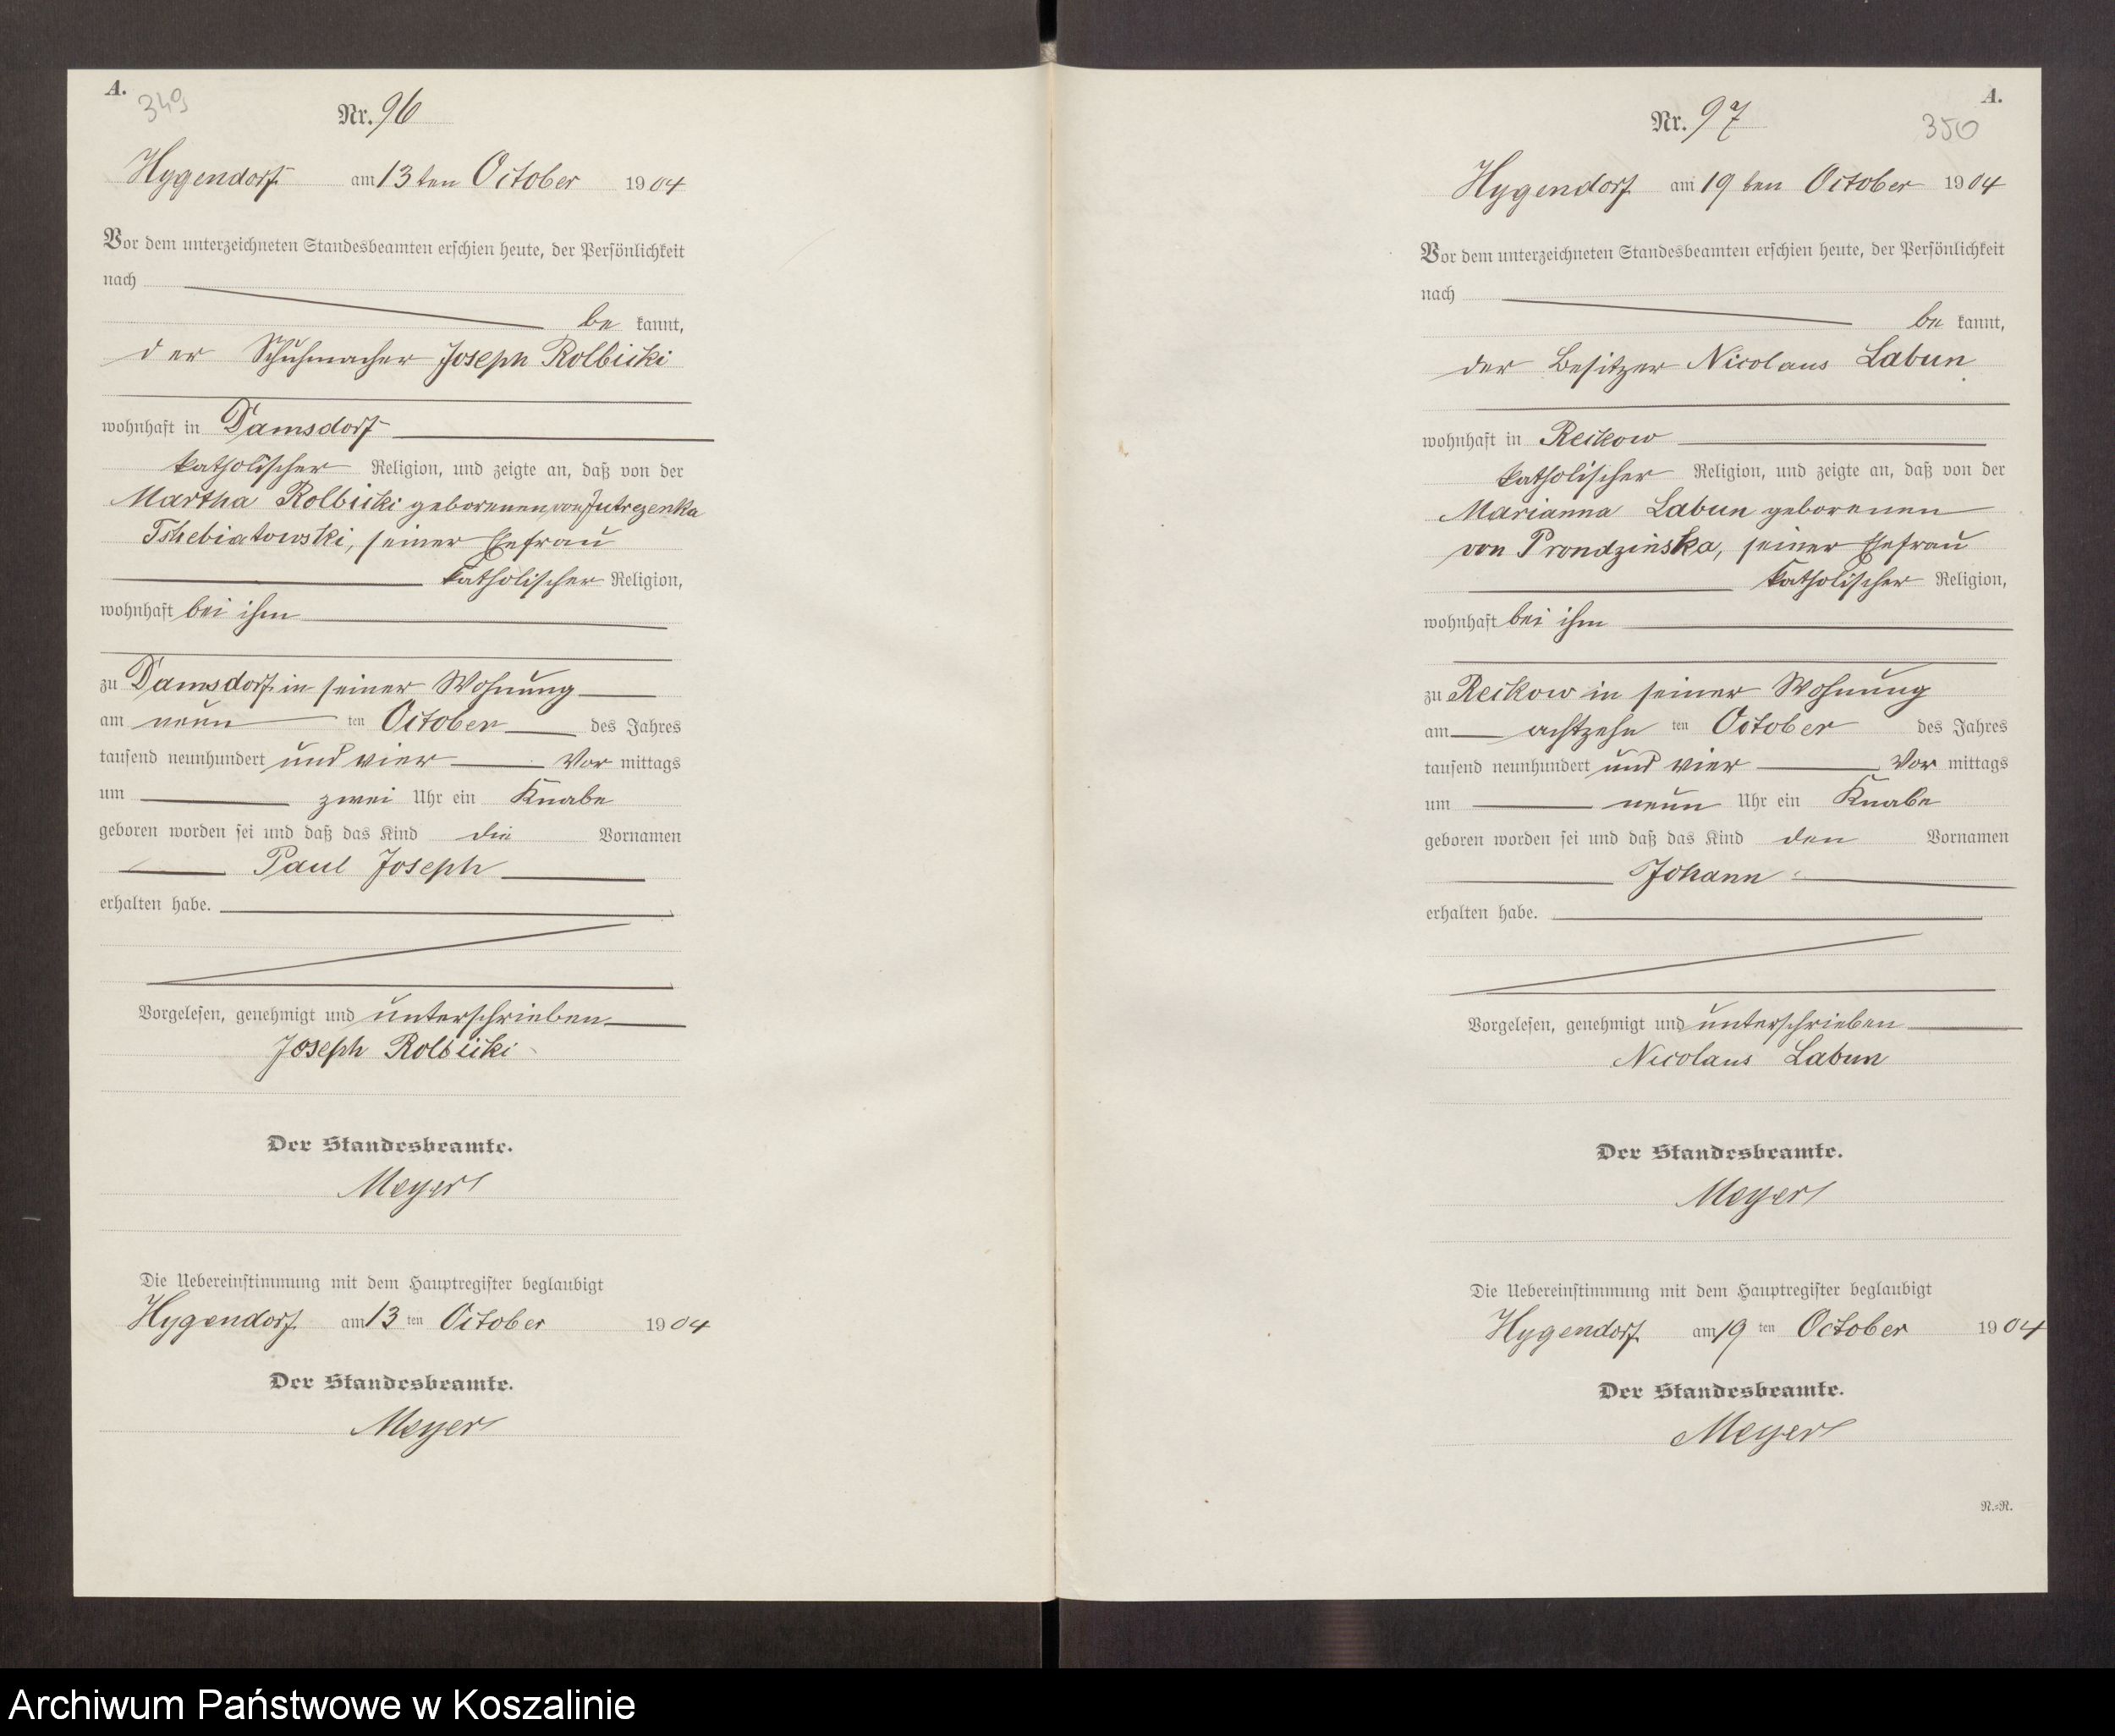 A.
349
Nr. 96
Hygendorf am 13ten October 1904
Vor dem unterzeichneten Standesbeamten erschien heute, der Persönlichkeit
nach
be kannt,
der Schuhmacher Joseph Rolbiecki
wohnhaft in Damsdorf
katholischer Religion, und zeigte an, daß von der
Martha Rolbiecki geborenen von Jutrzenka
Tshebiatowski, seiner Ehefrau
katholischer Religion,
wohnhaft bei ihm
zu Damsdorf in seiner Wohnung
am neun ten October des Jahres
tausend neunhundert und vier Vor mittags
um zwei Uhr ein Knabe
geboren worden sei und daß das Kind die Vornamen
Paul Joseph
erhalten habe.
Vorgelesen, genehmigt und unterschrieben
Joseph Rolbiecki
Der Standesbeamte.
Meyer
Die Uebereinstimmung mit dem Hauptregister beglaubigt
Hygendorf am 13 ten October 1904
Der Standesbeamte.
Meyer
A.
350
Nr. 97
Hygendorf am 19 ten October 1904
Vor dem unterzeichneten Standesbeamten erschien heute, der Persönlichkeit
nach
be kannt,
der Besitzer Nicolaus Labun
wohnhaft in Reckow
katholischer Religion, und zeigte an, daß von der
Marianna Labun geborenen
von Prondzinska, seiner Ehefrau
katholischer Religion,
wohnhaft bei ihm
zu Reckow in seiner Wohnung
am achtzehn ten October des Jahres
tausend neunhundert und vier Vor mittags
um neun Uhr ein Knabe
geboren worden sei und daß das Kind den Vornamen
Johann
erhalten habe.
Vorgelesen, genehmigt und unterschrieben
Nicolaus Labun
Der Standesbeamte.
Meyer
Die Uebereinstimmung mit dem Hauptregister beglaubigt
Hygendorf am 19 ten October 1904
Der Standesbeamte.
Meyer
N.=R.
Archiwum Państwowe w Koszalinie